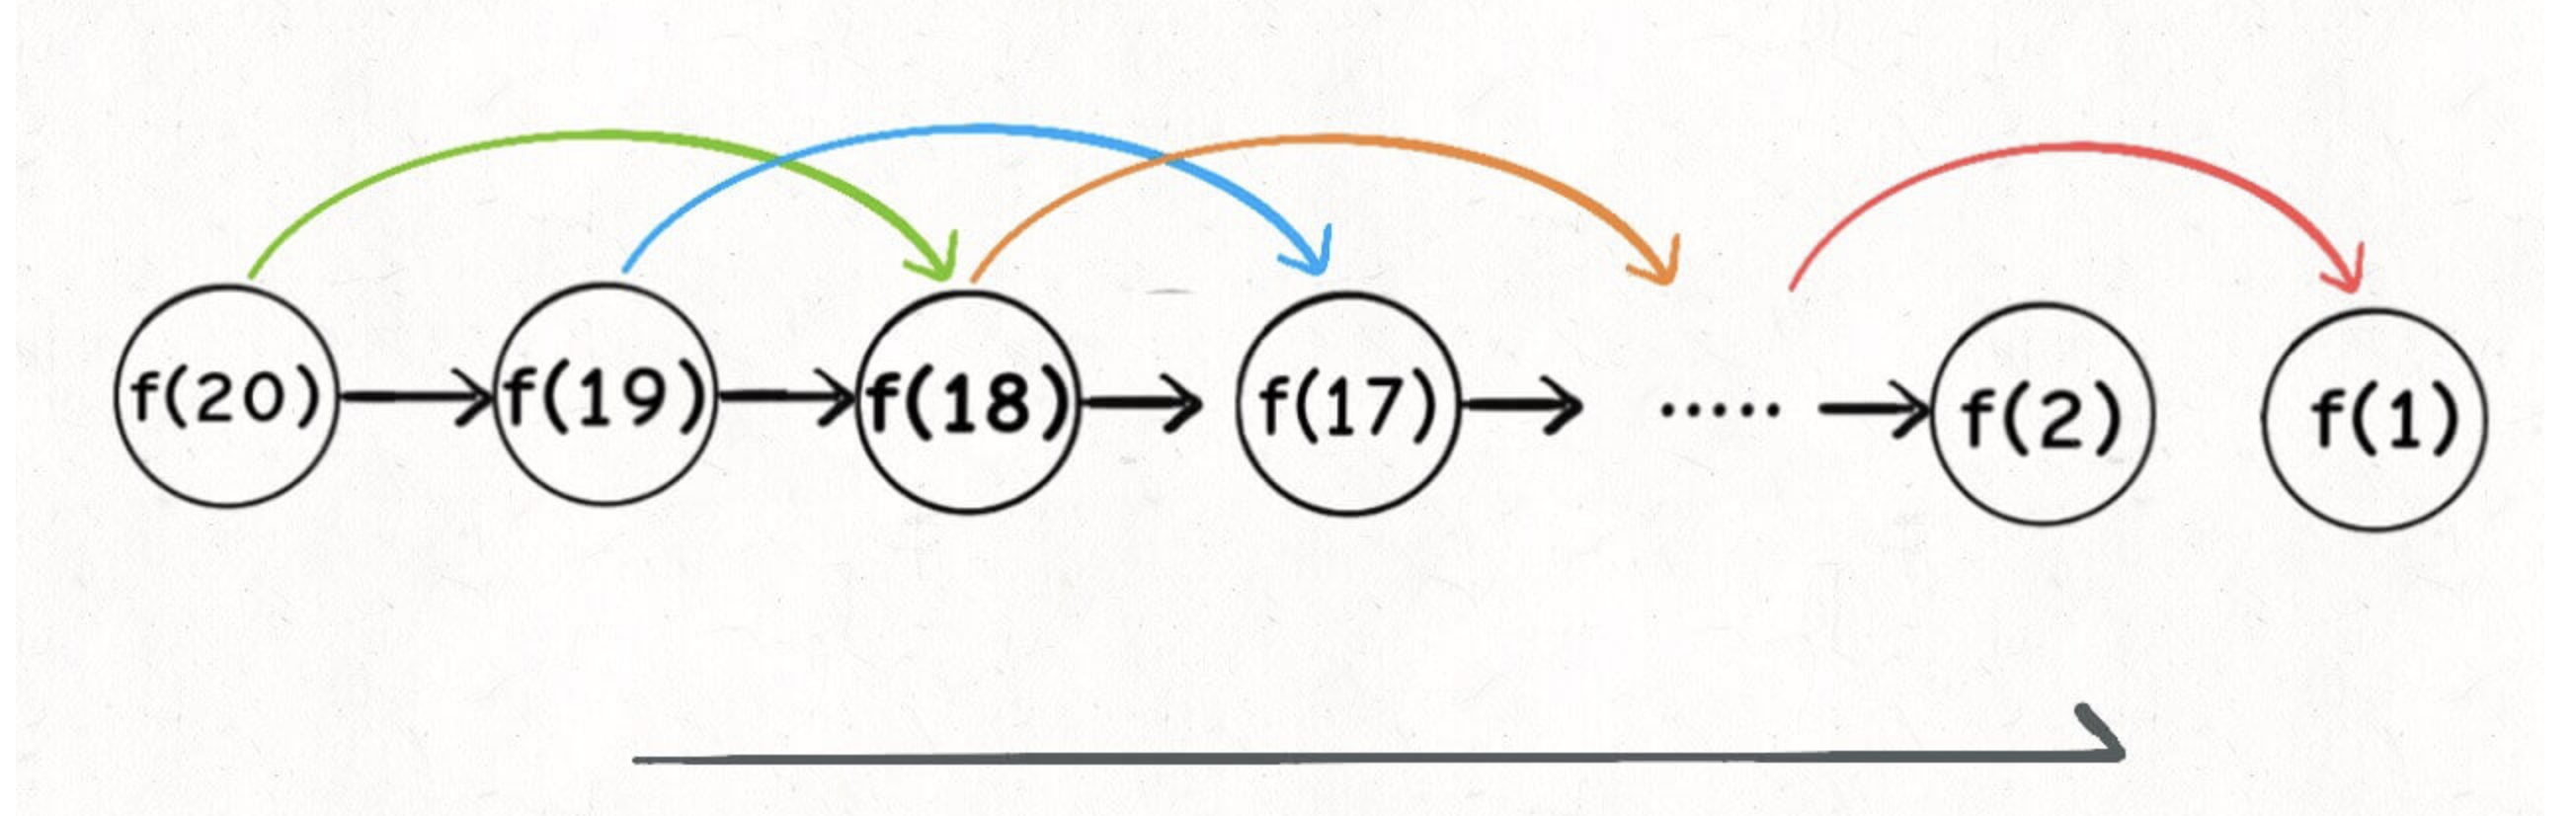 f(20) f(19) f(18) f(17) ..... f(2) f(1)